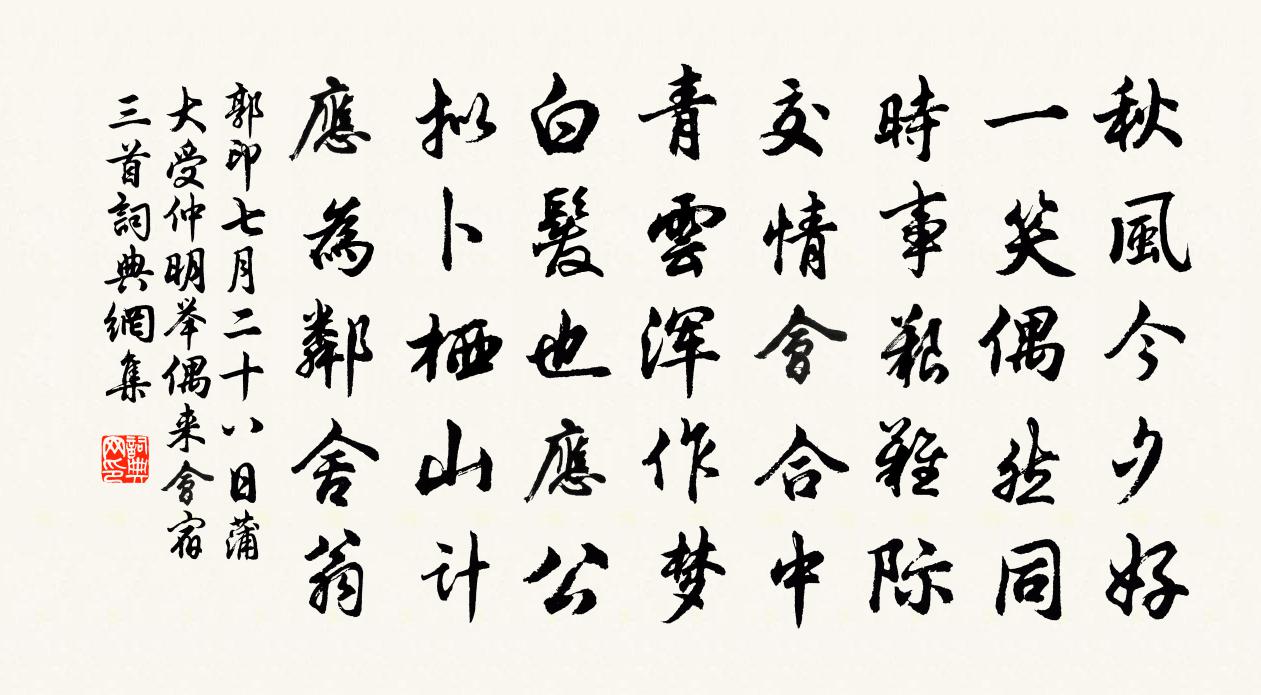 秋風今夕好
一笑偶然同
時事艱難際
交情會合中
青雲渾作梦
白髮也應公
拟卜栖山计
應為鄰舍翁
郭印七月二十八日蒲
大受仲明举偶来會宿
三首詞典網集
詞典网印